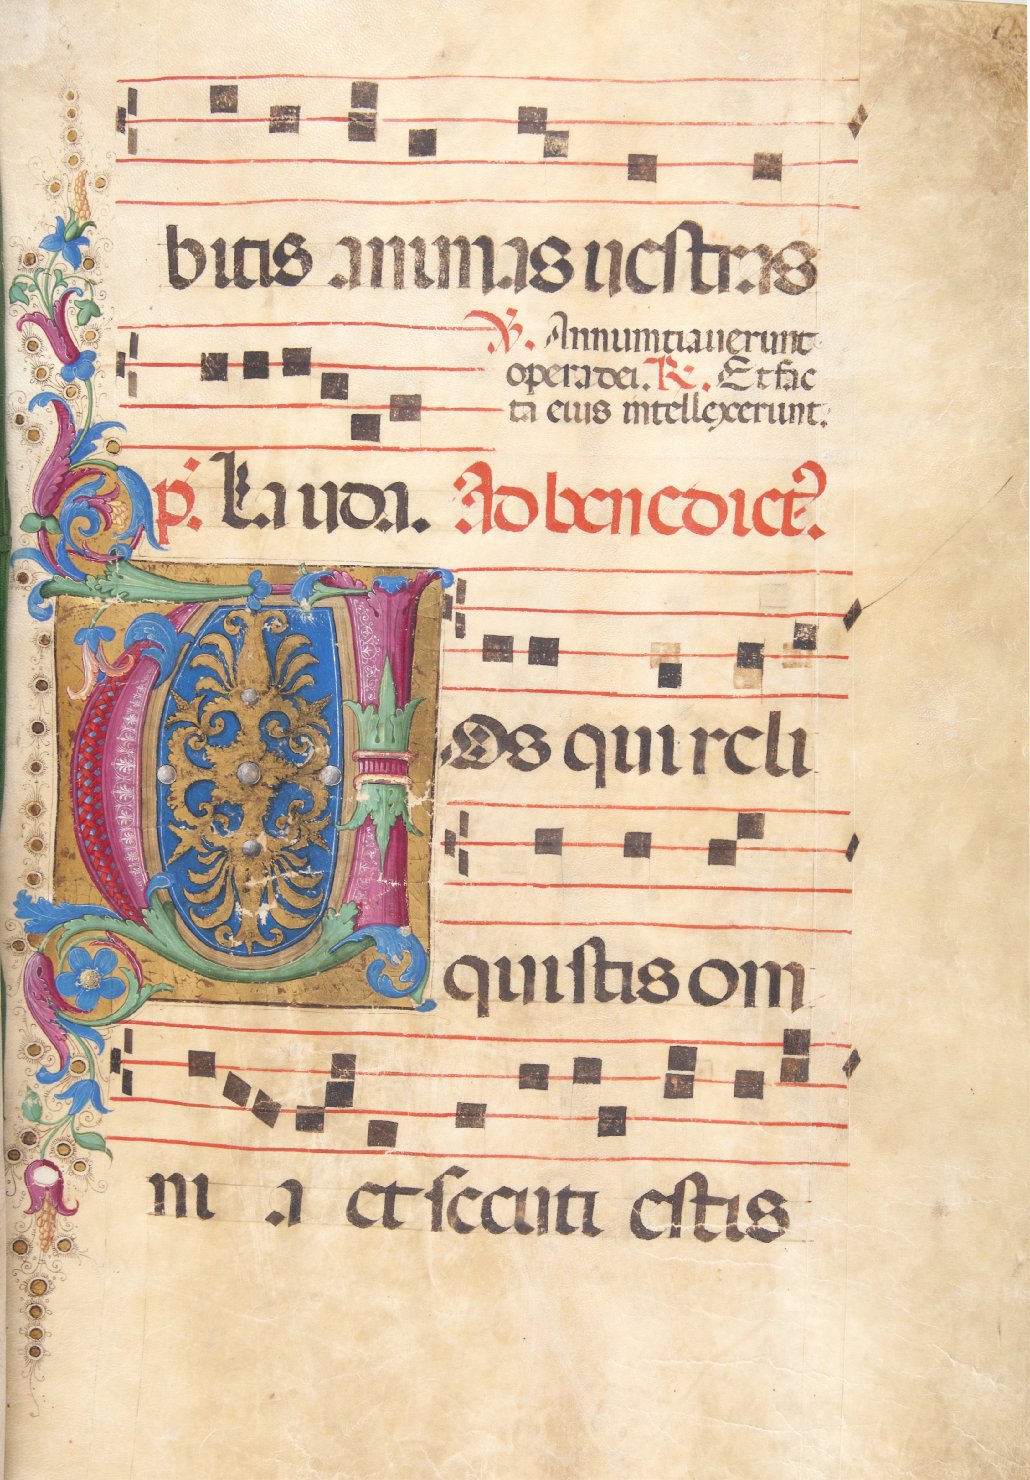 bitis animas uestras
℣. Annuntiauerunt
opera dei. ℟. Et fac
ta eius intellexerunt.
p̄s. Lauda. Ad benedict̄.
Vos qui reli
quistis om
ni a et secuti estis